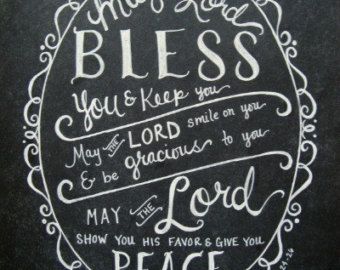 May Lord
BLESS
You & Keep you
May THE LORD smile on you
& be gracious to you
MAY THE Lord
SHOW YOU HIS FAVOR & GIVE YOU
PEACE
24-26